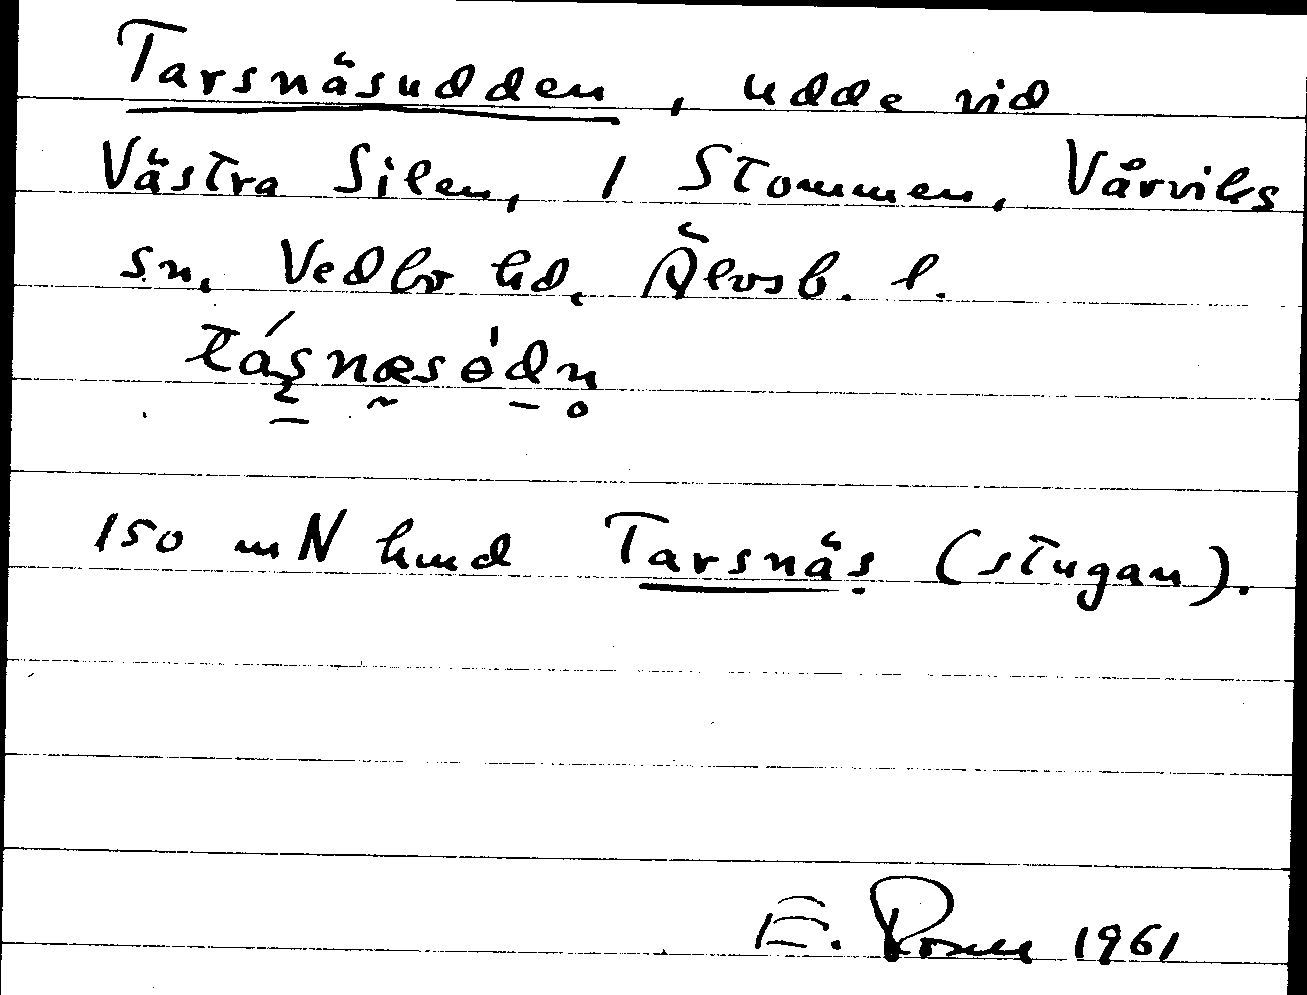 Tarsnäsudden, udde vid
Västra Silen, 1 Stommen, Vårviks
sn, Vedbo hd, Älvsb. l.
150 m N hmd Tarsnäs (stugan).
E. 1961